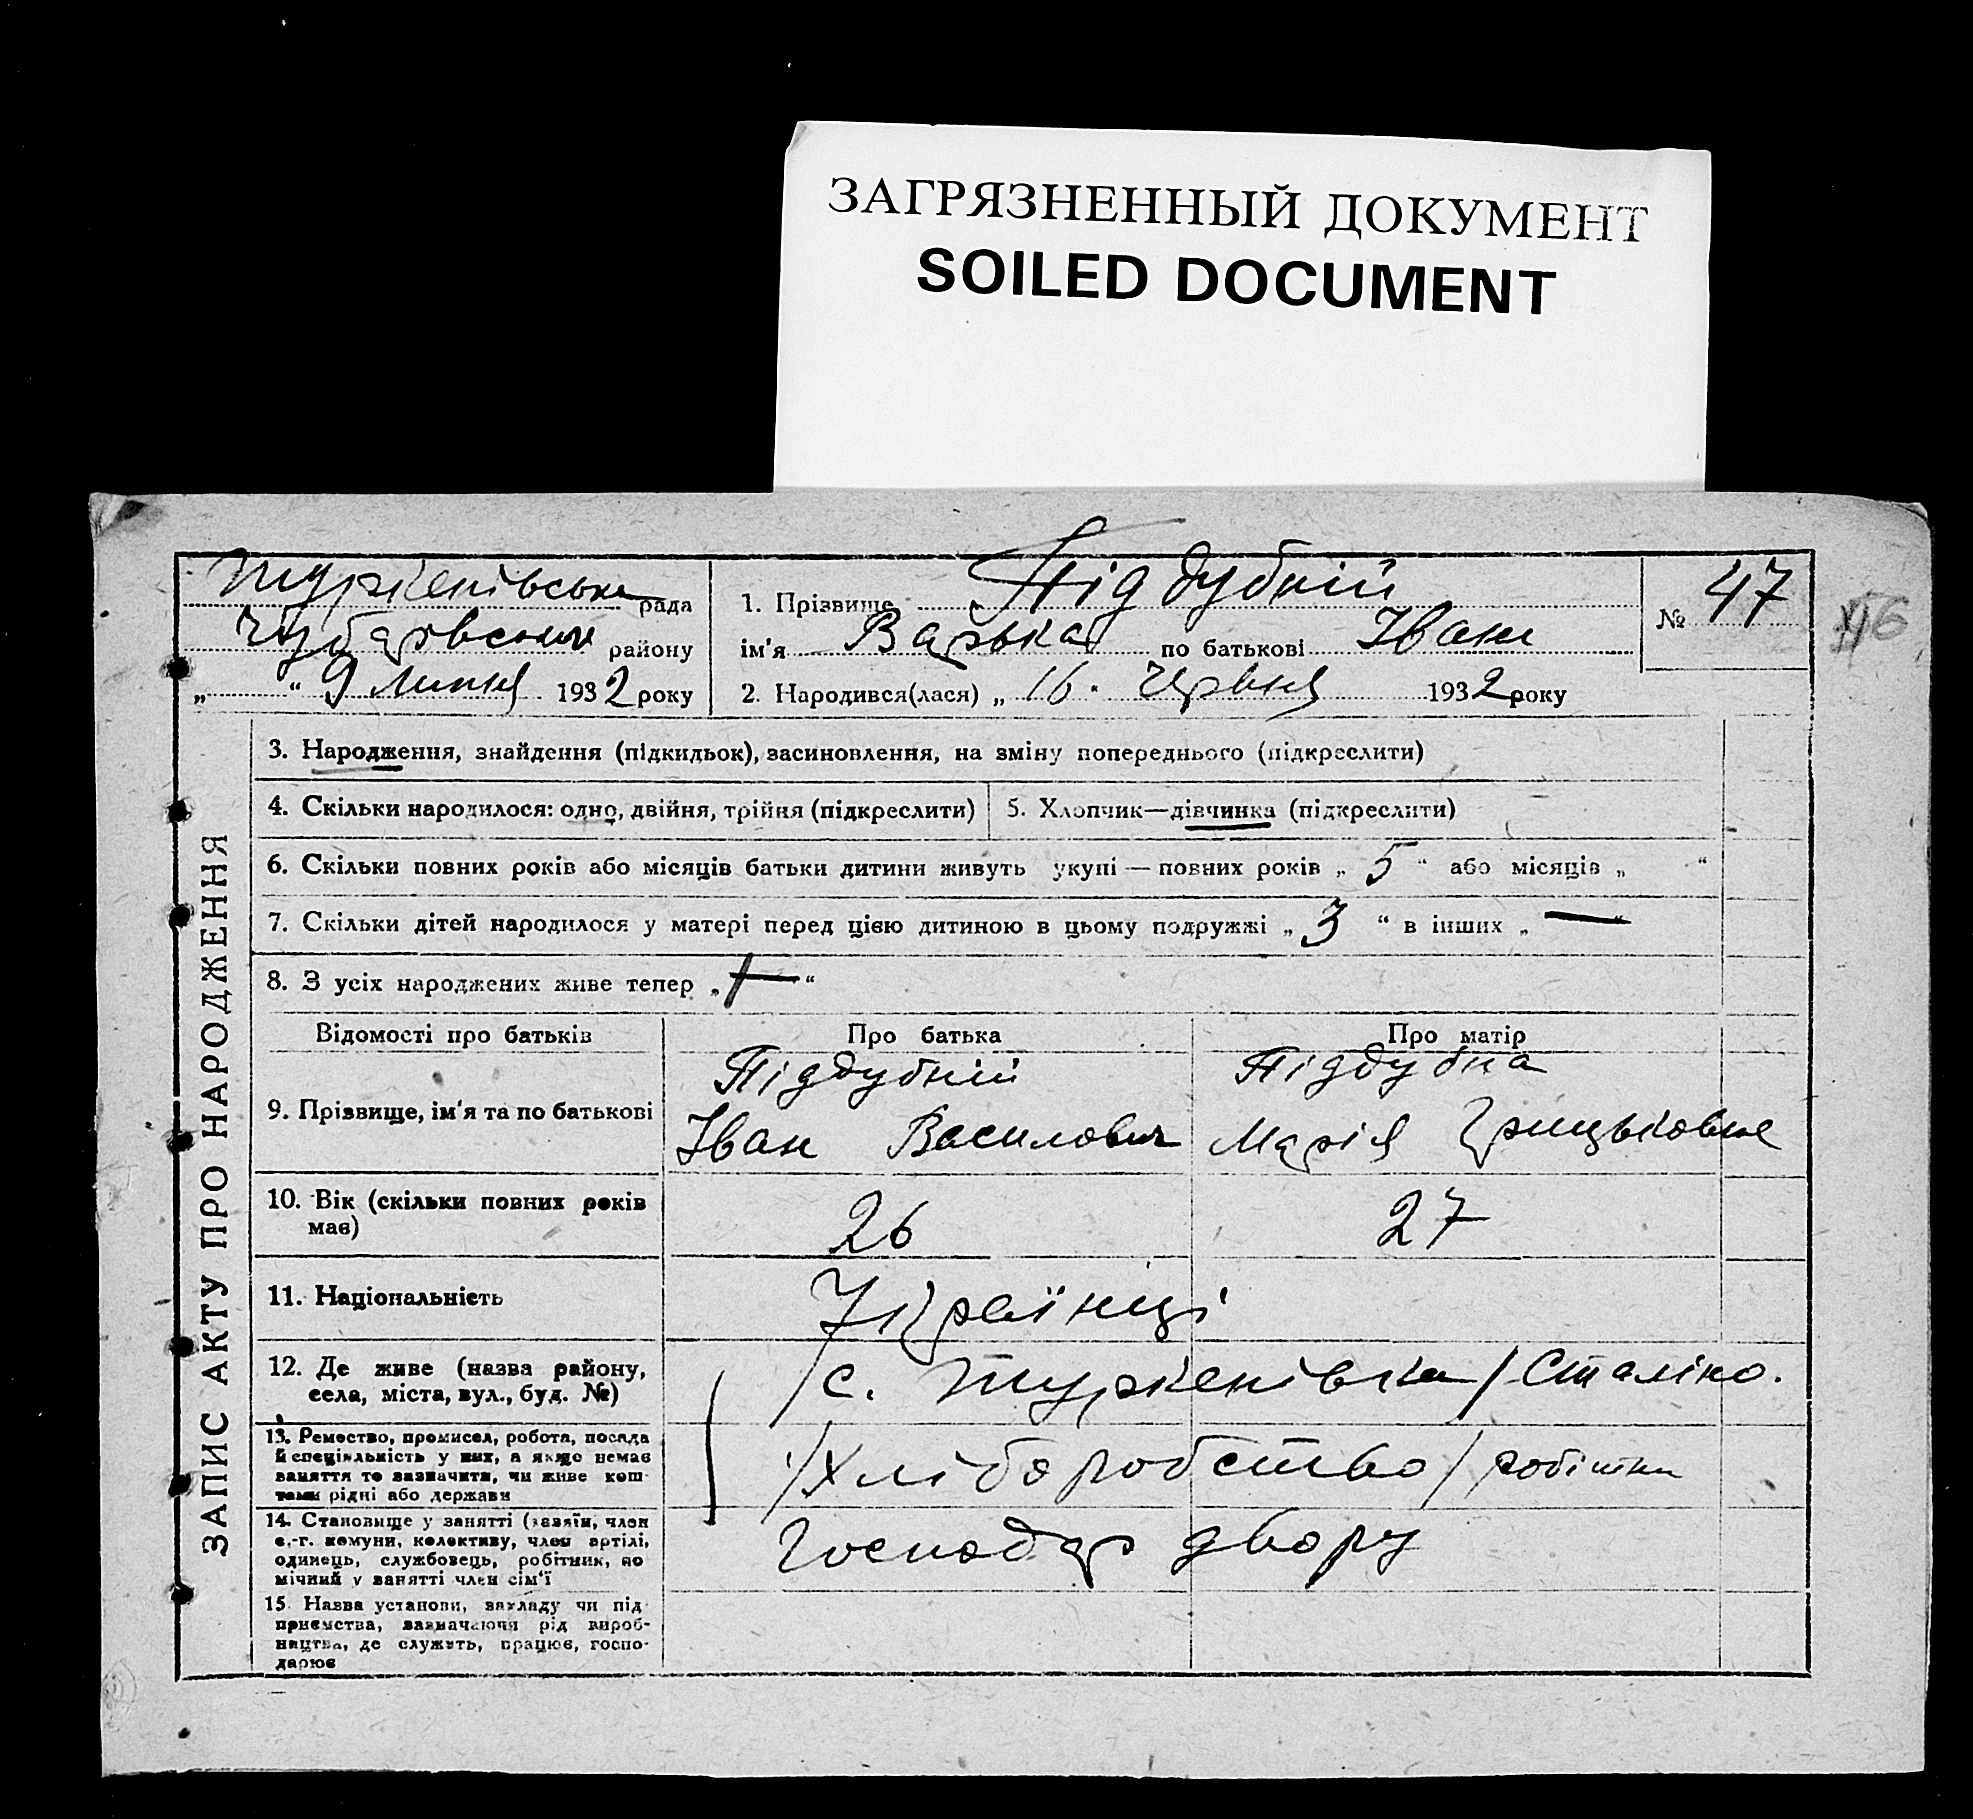 ЗАГРЯЗНЕННЫЙ ДОКУМЕНТ
SOILED DOCUMENT
Туркенівська рада
Чубарівський району
„ “ 9 Липня 1932 року
1. Прізвище Піддубній
ім'я Варька по батькові Іван
2. Народився(лася) „ 16. Червня 1932 року
№ 47
ЗАПИС АКТУ ПРО НАРОДЖЕННЯ
3. Народження, знайдення (підкидьок), засиновлення, на зміну попереднього (підкреслити)
4. Скільки народилося: одно, двійня, трійня (підкреслити)
5. Хлопчик—дівчинка (підкреслити)
6. Скільки повних років або місяців батьки дитини живуть укупі — повних років „ 5 “ або місяців „ “
7. Скільки дітей народилося у матері перед цією дитиною в цьому подружжі „ 3 “ в інших „ — “
8. З усіх народжених живе тепер „ “
Відомості про батьків
Про батька
Про матір
9. Прізвище, ім'я та по батькові
Піддубній
Іван Василович
Піддубна
Марія Грицьковна
10. Вік (скільки повних років
має)
26
27
11. Національність
Українці
12. Де живе (назва району,
села, міста, вул., буд. №)
/с. Туркенівка/ Сталіно.
13. Ремество, промисел, робота, посада
й спеціяльність у них, а якщо немає
заняття то зазначити, чи живе кош-
тами рідні або держави
/Хліборобство/
14. Становище у занятті (хазяїн, член
с.-г. комуни, колективу, член артілі,
одинець, службовець, робітник, по
мічний у занятті член сім'ї
Господар двору
15. Назва установи, закладу чи під
приємства, зазначаючи рід вироб-
ництва, де служить, працює, госпо-
дарює